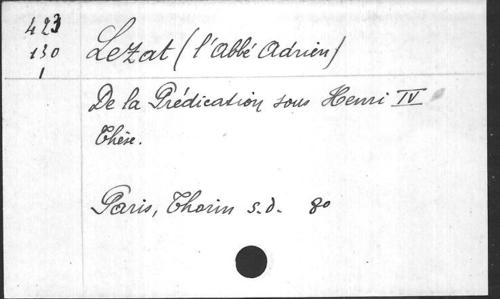 423
130
1
Lezat (l'Abbé Adrien)
De la Prédication sous Henri IV
Thèse.
Paris, Thorin s.d. 8o